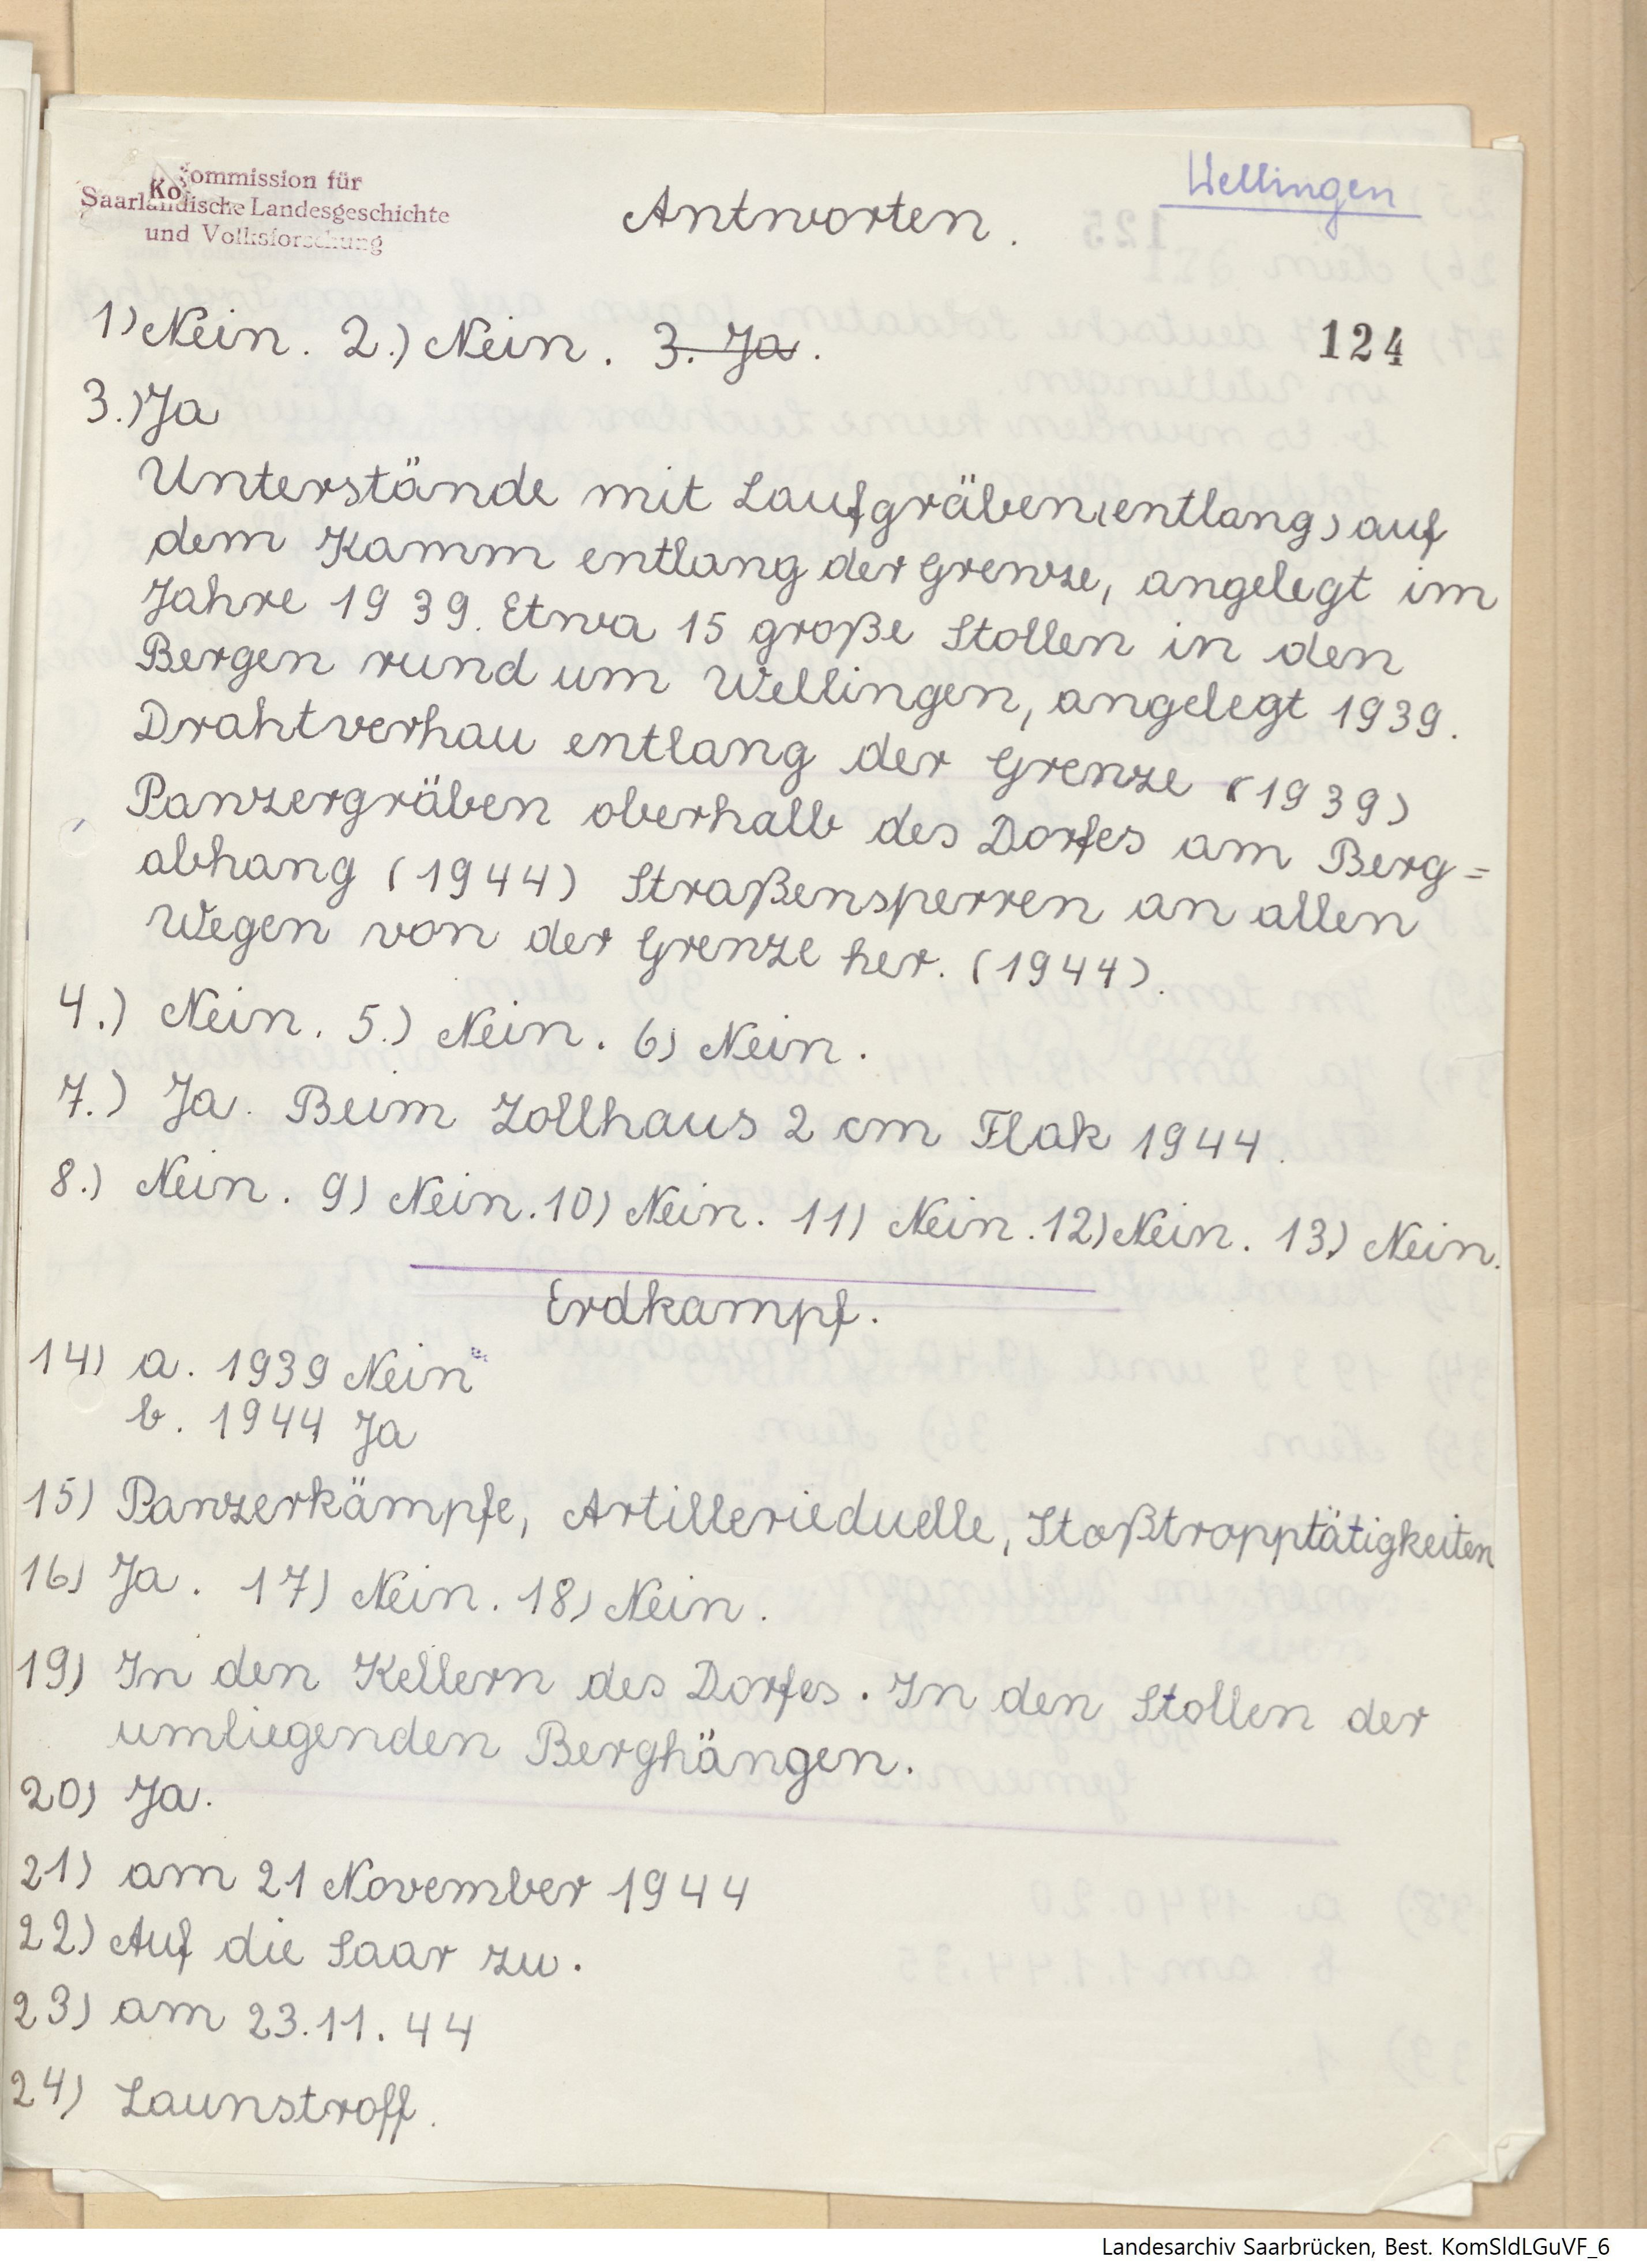 Kommission für
Saarländische Landesgeschichte
und Volksforschung
Wellingen
Antworten.
124
1) Nein. 2.) Nein. 3. Ja.
3.) Ja
Unterstände mit Laufgräben (entlang) auf
dem Kamm entlang der Grenze, angelegt im
Jahre 1939. Etwa 15 große Stollen in den
Bergen rund um Wellingen, angelegt 1939.
Drahtverhau entlang der Grenze (1939)
Panzergräben oberhalb des Dorfes am Berg=
abhang (1944) Straßensperren an allen
Wegen von der Grenze her. (1944).
4.) Nein. 5.) Nein. 6) Nein.
7.) Ja. Beim Zollhaus 2 cm Flak 1944.
8.) Nein. 9) Nein. 10) Nein. 11) Nein. 12) Nein. 13) Nein.
Erdkampf.
14) a. 1939 Nein
b. 1944 Ja
15) Panzerkämpfe, Artillerieduelle, Stoßtropptätigkeiten
16) Ja. 17) Nein. 18) Nein.
19) In den Kellern des Dorfes. In den Stollen der
umliegenden Berghängen.
20) Ja.
21) am 21 November 1944
22) Auf die Saar zu.
23) am 23.11.44
24) Launstroff.
Landesarchiv Saarbrücken, Best. KomSldLGuVF_6